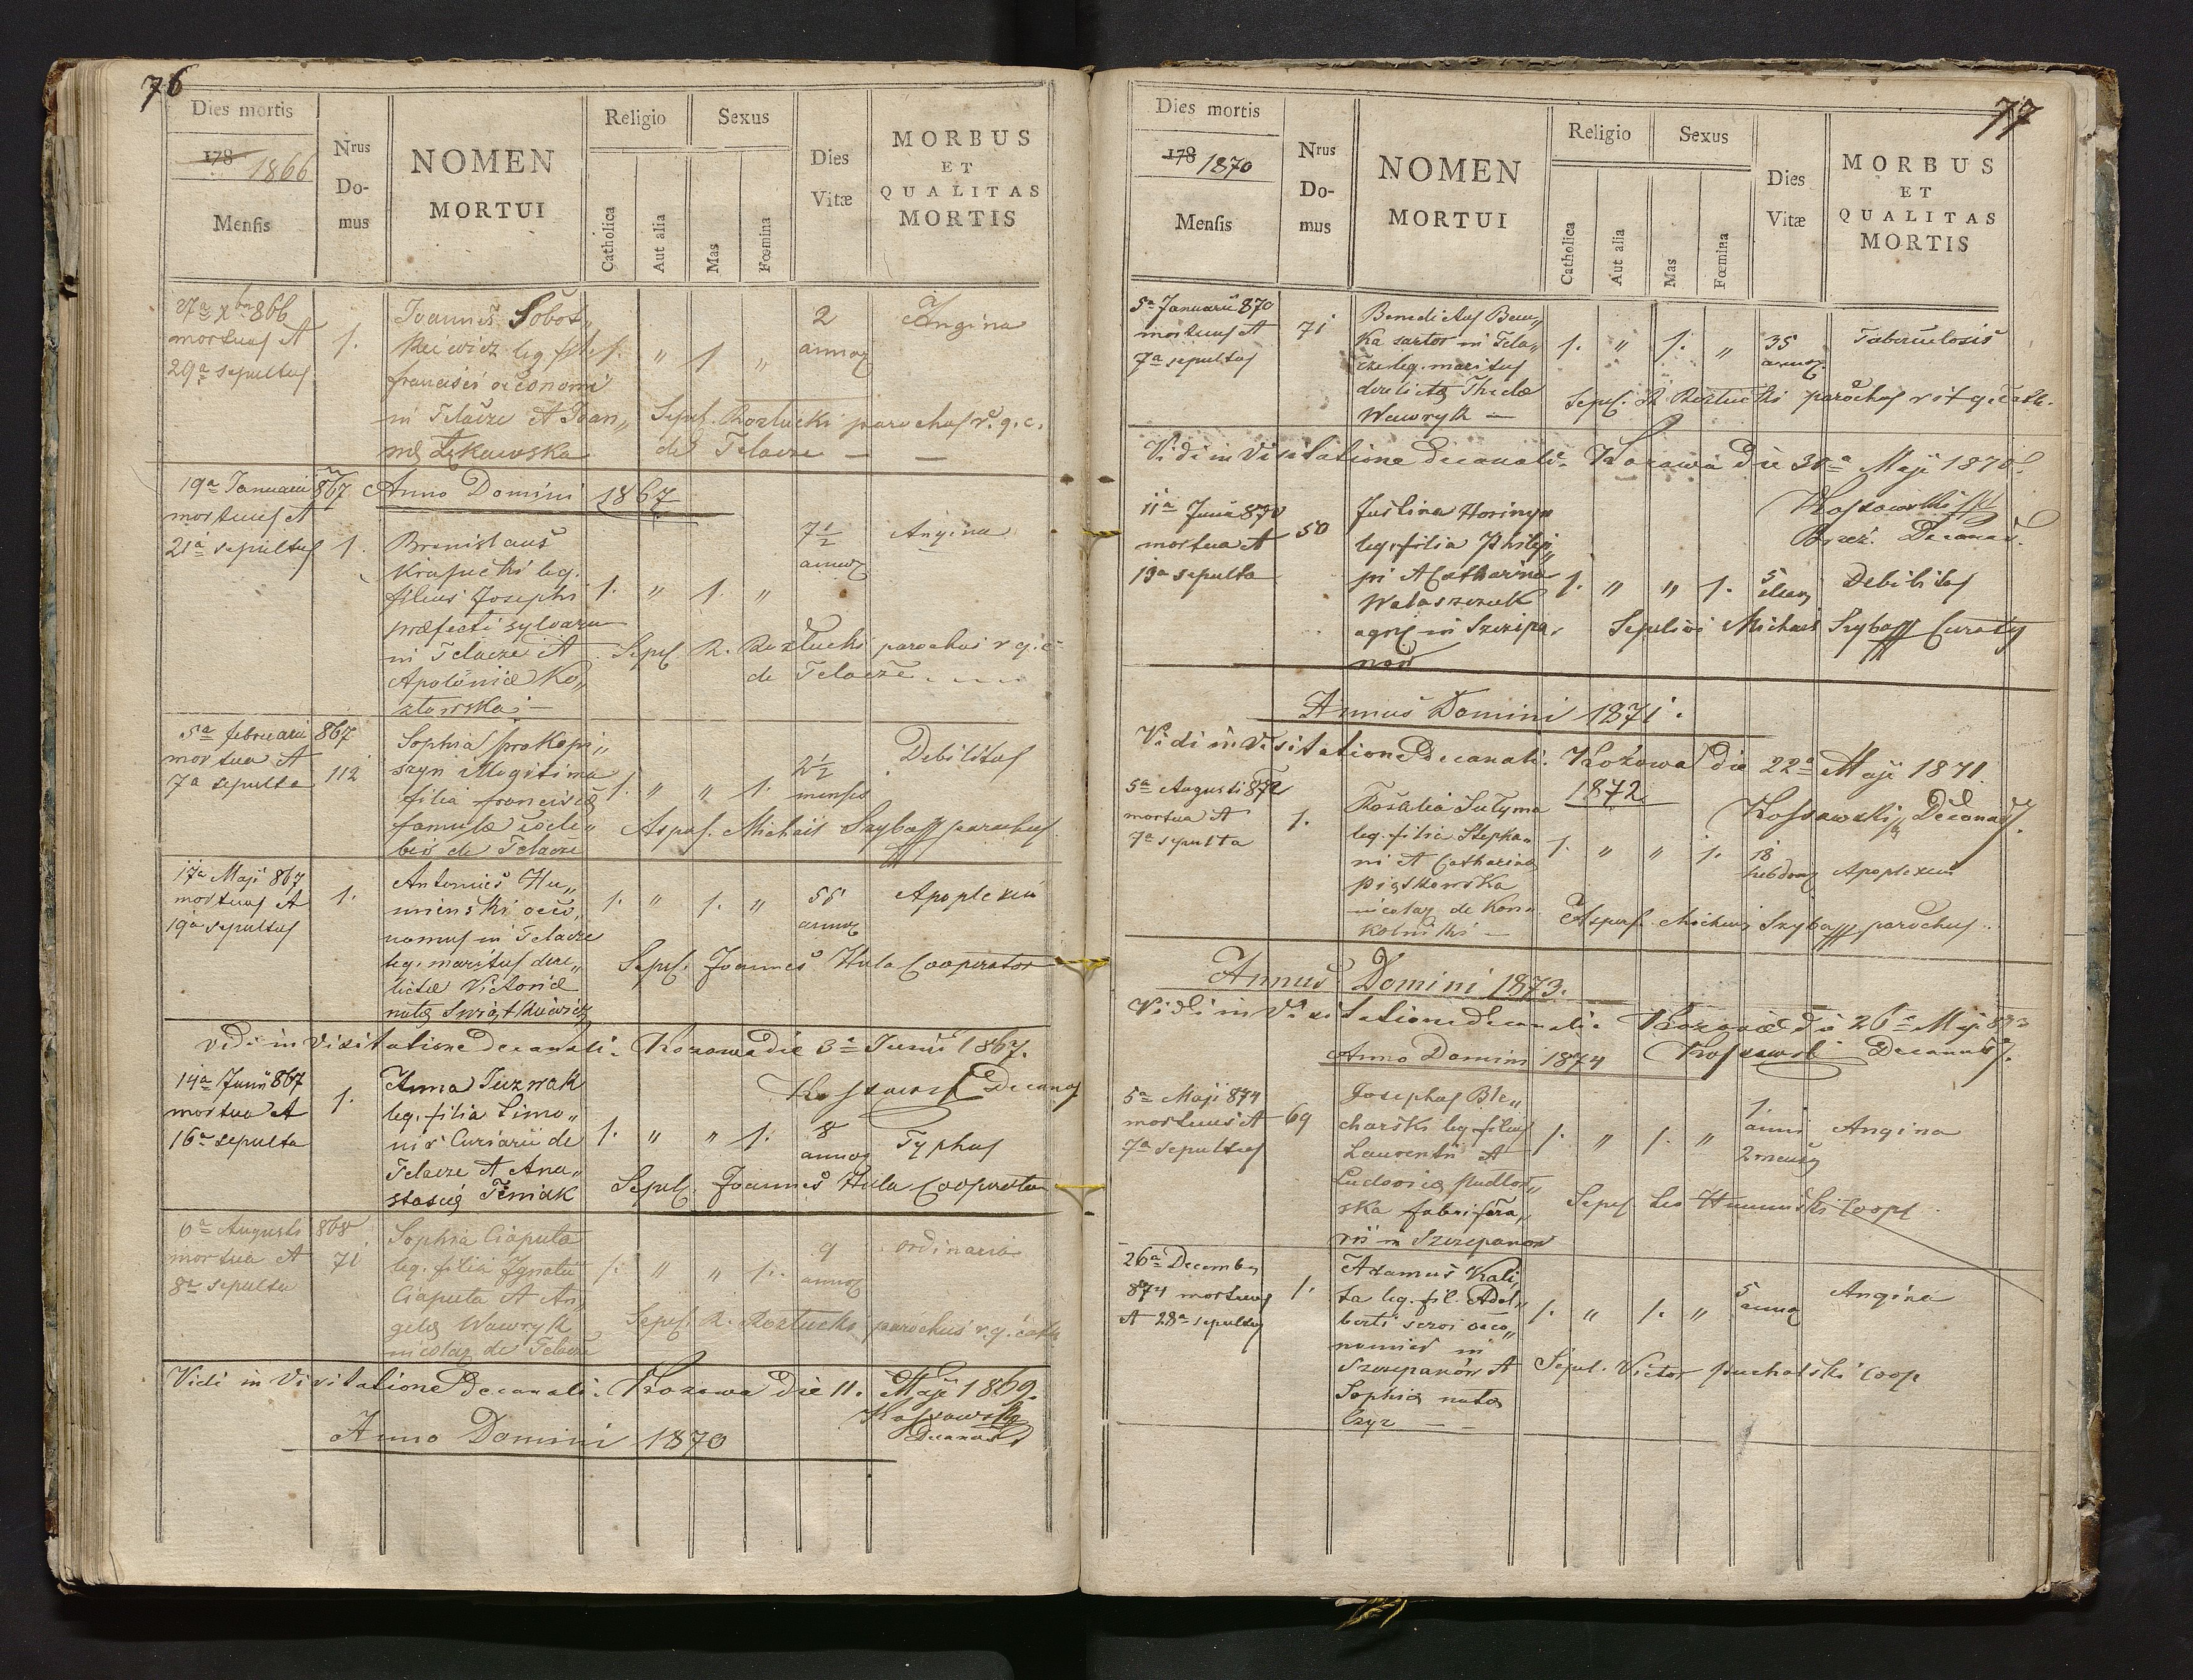 76
Dies mortis
178 1866
Mensis
Nrus
Do-
mus
NOMEN
MORTUI
Religio
Catholica
Aut alia
Sexus
Mas
Fœmina
Dies
Vitæ
MORBUS
ET
QUALITAS
MORTIS
27a xbr 866
mortuus et
29a sepultus
1.
Joannes Sobot„
kiewicz leg. fil.
francisci oeconomi
in Telacze et Joan„
1. „ 1 „
2
annor
Angina
Sepel. Rozlucki parochus r. g. c.
de Telacze —
19a Januarii 867
mortuus et
21a sepultus
1.
Anno Domini 1867
Bronislaus
leg.
filius Josephi
præfecti sylvarum
in Telacze et
Apoloniæ Ko„
złowska —
1. „ 1. „
7½
annor
Angina
Sepel. R. Rozlucki parochus r g. c
de Telacze
5a februarii 867
mortua et
7a sepulta
112
Sophia Prokopi„
szyn illegitima
filia francisca
famulæ
de Telacze
1. „ „ 1.
2½
menses
Debilitas
Aspers. Michael Szyba parochus
17a Maji 867
mortuus et
19a sepultus
1.
Antonius Hu„
mienski oeco„
nomus in Telacze
leg. maritus dere„
lictæ Victoriæ
nata
1. „ 1. „
55
annor
Apoplexia
Sepel. Joannes Hula Cooperator
Vidi in Visitatione decanali. Kozowa die 3a Junii 1867.
Kossowski Decanus
14a Junii 867
mortua et
16a sepulta
1.
Anna Tuzwak
leg. filia Simo„
nis Cursarii de
Telacze et Ana„
stasiæ
1. „ „ 1.
8
annor
Typhus
Sepel. Joannes Hula Cooperator
6a Augusti 868
mortua et
8a sepulta
71
Sophia Ciaputa
leg. filia Ignatii
Ciaputa et An„
gela Wawryk
incolar de Telacze
1. „ „ 1.
9
annor
ordinaria
Sepel. R. Rozlucki parochus r. g. cath
Vidi in Visitatione Decanali. Kozowa die 11. Maji 1869.
Kossowski
Decanus
Anno Domini 1870
77
Dies mortis
178 1870
Mensis
Nrus
Do-
mus
NOMEN
MORTUI
Religio
Catholica
Aut alia
Sexus
Mas
Fœmina
Dies
Vitæ
MORBUS
ET
QUALITAS
MORTIS
5a Januarii 870
mortuus et
7a sepultus
71
Benedictus Baw„
ka sartor in Tela„
cze leg. maritus
derelictæ Theclæ
Wawryk —
1. „ 1. „
35
annor
Tuberculosis
Sepel. R Rozlucki parochus rit g. cath.
Vidi in Visitatione decanali. Kozowa die 30a Maji 1870.
Kossowski
Brzeż. Decanus.
11a Junii 870
mortua et
13a sepulta
50
Justina Horinyn
leg. filia Philip„
pi et Catharina
Walaszczuk
agric in Szczepa„
now
1. „ „ 1.
5
dierum
Debilitas
Sepelivi Michael Szyba Curatus
Annus Domini 1871.
Vidi in Visitatione Decanali. Kozowa die 22a Maji 1871.
Kossowski Decanus.
1872
5a Augusti 872
mortua et
7a sepulta
1.
Rosalia Sulyma
leg. filia Stepha„
ni et Catharina
Piątkowska
incolar de Kona
kolniki —
1. „ „ 1.
18
hebdom
Apoplexia
Aspers. Michael Szyba parochus.
Annus Domini 1873.
Vidi in Visitatione Decanali. Kozowa die 26a Maji 873
Kossowski Decanus.
Anno Domini 1874
5a Maji 874
mortuus et
7a sepultus
69
Josephus Ble„
charski leg filius
Laurentii et
Ludovica Pudlow„
ska
in Szczepanow
1. „ 1. „
1.
anni
2 mens
Angina
Sepel. Leo Huminski Coop
26a Decembr
874 mortuus
et 28a sepultus
1.
Adamus Kali„
ta leg. fil. Adal„
berti servi oeco„
nomici in
Szczepanow et
Sophia nata
Czyz —
1. „ 1. „
5
annor
Angina
Sepel. Victor Puchalski Coop